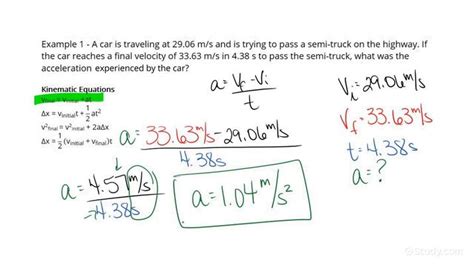 Example 1 - A car is traveling at 29.06 m/s and is trying to pass a semi-truck on the highway. If
the car reaches a final velocity of 33.63 m/s in 4.38 s to pass the semi-truck, what was the
acceleration experienced by the car?
Kinematic Equations
Δx = v_initial t + 1/2 at²
v²_final = v²_initial + 2aΔx
Δx = 1/2 (v_initial + v_final)t
a = Vf - Vi / t
a = 33.63 m/s - 29.06 m/s / 4.38s
a = 4.57 m/s / 4.38s
a = 1.04 m/s²
Vi = 29.06 m/s
Vf = 33.63 m/s
t = 4.38s
a = ?
Study.com